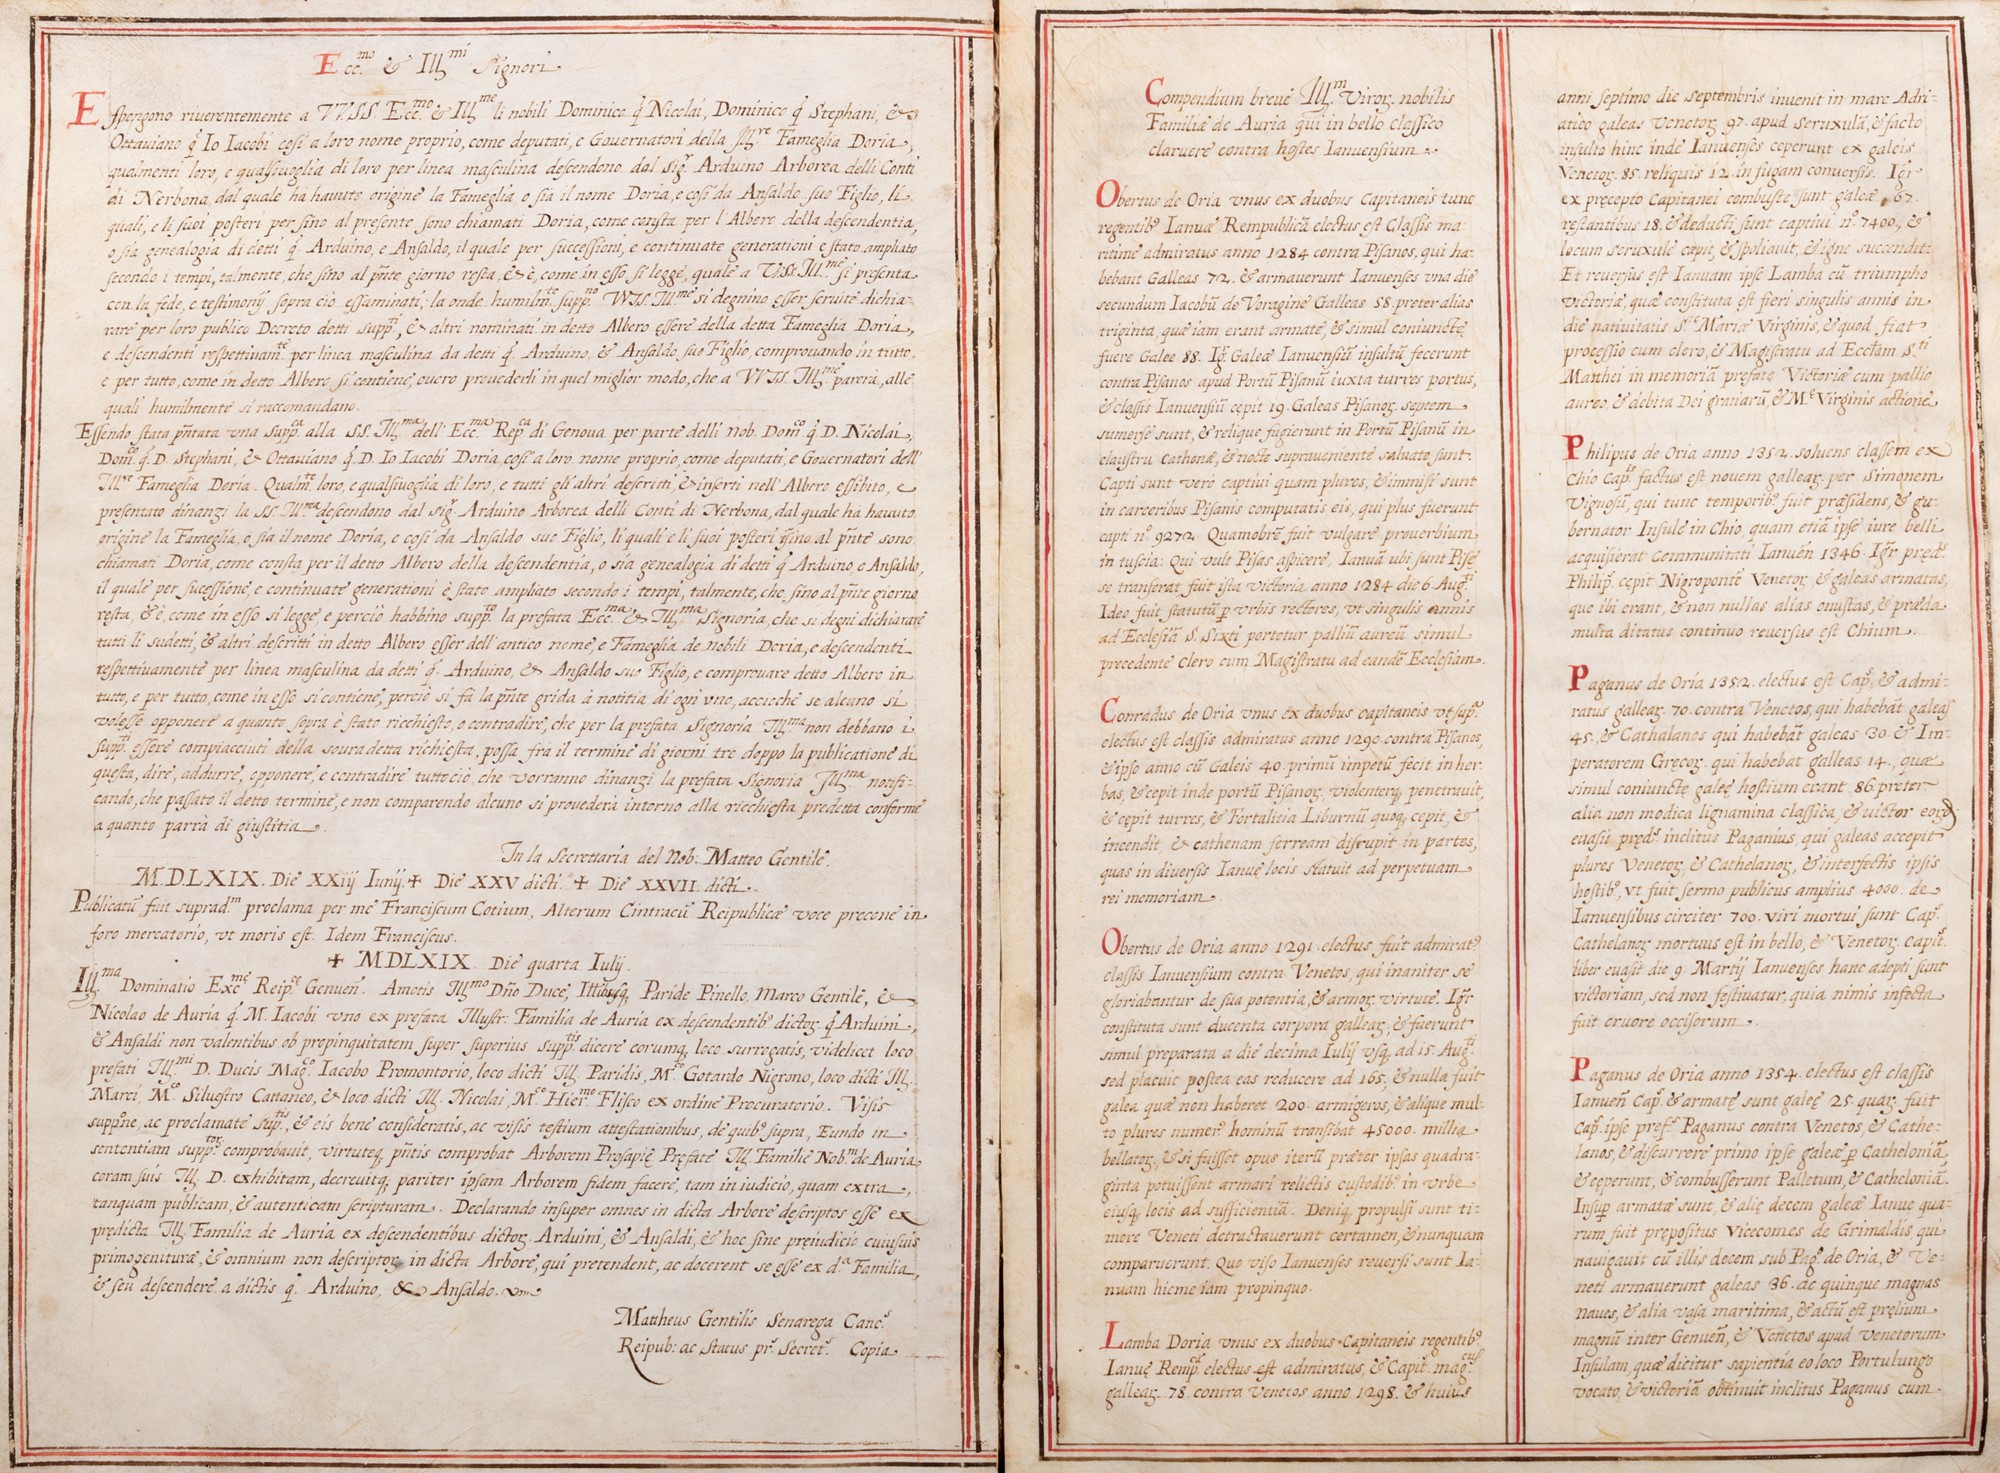 Ecc.mo & Ill.mi Signori
Espongono riverentemente a VV.SS. Ecc.mo & Ill.me li nobili Dominico q̃ Nicolai, Dominico q̃ Stephani, &
Ottaviano q̃ Io Iacobi cosi a loro nome proprio, come deputati, e Governatori della Ill.re Fameglia Doria,
qualmenti loro, e qualsivoglia di loro per linea masculina descendono dal sig.r Arduino Arborea delli Conti
di Nerbona, dal quale hà havuto origine la Fameglia, o sia il nome Doria, e così da Ansaldo suo Figlio, li
quali, e li suoi posteri per sino al presente sono chiamati Doria, come consta per l'Albero della descendentia,
o sia genealogia di detti q̃ Arduino, e Ansaldo, il quale per successioni, e continuate generationi e stato ampliato
secondo i tempi, talmente, che sino al pñte giorno resta, & è, come in esso si legge, quale a V.SS. Ill.me si presenta
con la fede, e testimonij sopra ciò essaminati; la onde humilm.te supp.no VV.SS. Ill.me si degnino esser servite dichia-
rare per loro publico Decreto detti supp.ti, & altri nominati in detto Albero essere della detta Fameglia Doria,
e descendenti respettivam.te per linea masculina da detti q̃ Arduino, & Ansaldo suo Figlio, comprovando in tutto,
e per tutto, come in detto Albero si contiene, overo provederli in quel miglior modo, che a VV.SS. Ill.me parerà, alle
quali humilmente si raccomandano.
Essendo stata pñtata una supp.ca alla SS. Ill.ma dell'Ecc.ma Rep.ca di Genova per parte delli nob. Dom.co q̃ D. Nicolai,
Dom.co q̃ D. Stephani, & Ottaviano q̃ D. Io Iacobi Doria, cosi a loro nome proprio, come deputati, e Governatori dell'
Ill.re Fameglia Doria. Qualm.te loro, e qualsivoglia di loro, e tutti gli altri descritti, & inserti nell'Albero essibito, e
presentato dinanzi la SS. Ill.ma descendono dal sig.r Arduino Arborea delli Conti di Nerbona, dal quale hà havuto
origine la Fameglia, o sia il nome Doria, e cosi da Ansaldo suo Figlio, li quali e li suoi posteri sino al pñte sono
chiamati Doria, come consta per il detto Albero della descendentia, o sia genealogia di detti q̃ Arduino e Ansaldo,
il quale per sucessione, e continuate generationi è stato ampliato secondo i tempi, talmente, che, sino al pñte giorno
resta, & è, come in esso si legge, e perciò habbino supp.to la prefata Ecc.ma & Ill.ma Signoria, che si degni dichiarare
tutti li sudetti, & altri descritti in detto Albero esser dell'antico nome, e Fameglia de nobili Doria, e descendenti
respettivamente per linea masculina da detti q̃ Arduino, & Ansaldo suo Figlio, e comprovare detto Albero in
tutto, e per tutto, come in esso si contiene, perciò si fà la pñte grida à notitia di ogn'uno, acciochè se alcuno si
volesse opponere a quanto sopra è stato ricchiesto, o contradire, che per la prefata Signoria Ill.ma non debbano i
supp.ti essere compiacciuti della souradetta richiesta, possa frà il termine di giorni tre doppo la publicatione di
questa, dire, addurre, opponere, e contradire tutto ciò, che vorranno dinanzi la prefata Signoria Ill.ma notifi-
cando, che passato il detto termine, e non comparendo alcuno si provederà intorno alla ricchiesta predetta conforme
a quanto parrà di giustitia.
In la Secrettaria del Nob: Matteo Gentile.
M.D.LXIX. Die XXiij Iunij. + Die XXV dicti. + Die XXVII. dicti.
Publicatũ fuit suprad.m proclama per me Franciscum Cotium, Alterum Cintracũ Reipublicæ voce precone in
foro mercatorio, vt moris est. Idem Franciscus.
+ MDLXIX Die quarta Iulij.
Ill.ma Dominatio Exc.me Reip.ce Genueñ. Amotis Ill.mo Dño Duce, Paride Pinello, Marco Gentile, &
Nicolao de Auria q̃ M. Iacobi uno ex prefata Illustr: Familia de Auria ex descendentib9 dictor. q̃ Arduini,
& Ansaldi non valentibus ob propinquitatem super superius supp.tis dicere eorumq, loco surrogatis, videlicet loco
prefati Ill.mi D. Ducis Mag.co Iacobo Promontorio, loco dicti Ill. Paridis, M.co Gotardo Nigrono, loco dicti Ill.
Marci, M.co Silvestro Cattaneo, & loco dicti Ill. Nicolai, M.co Hier.mo Flisco ex ordine Procuratorio. Visis
suppne, ac proclamate sup.tis, & eis bene consideratis, ac visis testium attestationibus, de quib9 supra, Eundo in
sententiam supp.tor. comprobavit, virtuteq, pñtis comprobat Arborem Prosapię Pręfatę Ill. Familię Nob.m de Auria
coram suis Ill. D. exhibitam, decrevitq, pariter ipsam Arborem fidem facere, tam in iudicio, quam extra,
tanquam publicam, & autenticam scripturam. Declarando insuper omnes in dicta Arbore descriptos esse ex
prędicta Ill. Familia de Auria ex descendentibus dictor. Arduini, & Ansaldi, & hoc sine pręiudicio cuiusvis
primogenituræ, & omnium non descriptor. in dicta Arbore, qui pretendent, ac docerent se esse ex d.a Familia,
& seu descendere a dictis q̃ Arduino, & Ansaldo.
Mattheus Gentilis Senarega Canc.s
Reipub: ac Status pr.s Secret.s Copia
Compendium breve Ill.m Viror. nobilis
Familiæ de Auria qui in bello classico
claruere contra hostes Ianuensium.
Obertus de Oria vnus ex duobus Capitaneis tunc
regentib9 Ianuæ Rempublicã electus est Classis ma-
ritime admiratus anno 1284 contra Pisanos, qui ha-
bebant Galleas 72. & armauerunt Ianuenses vna die
secundum Iacobũ de Voragine Galleas 58. preter alias
triginta, quæ iam erant armatę, & simul coniunctę
fuere Galee 88. Igr. Galeæ Ianuensiũ insultũ fecerunt
contra Pisanos apud Portũ Pisanũ iuxta turres portus,
& classis Ianuensiũ cepit 19. Galeas Pisanor. septem
sumerse sunt, & relique fugierunt in Portũ Pisanũ in
claustru cathenæ, & nocte supraveniente salvate sunt.
Capti sunt verò captivi quam plures, & immisi sunt
in carceribus Pisanis computatis eis, qui plus fuerunt
capti n.o 9272. Quamobrẽ fuit vulgare proverbium
in tuscia: Qui vult Pisas aspicere, Ianuã ubi sunt Pise
se transferat fuit ista victoria anno 1284 die 6. Aug.ti
Ideo fuit statutũ p vrbis rectores, vt singulis annis
ad Ecclesiã S. Sixti portetur palliũ aureũ simul
precedente clero cum Magistratu ad eandẽ Ecclesiam.
Conradus de Oria vnus ex duobus capitaneis vt sup.a
electus est classis admiratus anno 1290 contra Pisanos,
& ipso anno cũ Galeis 40. primũ impetũ fecit in her-
bas, & cepit inde portũ Pisanor. violenterq, penetrauit,
& cepit turres, & Fortalitia Liburnũ quoq, cepit, &
incendit, & cathenam ferream disrupit in partes,
quas in diversis Ianuę locis statuit ad perpetuam
rei memoriam.
Obertus de Oria anno 1291. electus fuit admirat9
classis Ianuensium contra Venetos, qui inaniter se
gloriabantur de sua potentia, & armor. virtute. Igr.
constituta sunt ducenta corpora gallear, & fuerunt
simul preparata a die decima Iulij vsq, ad 15. Aug.ti
sed placuit postea eas reducere ad 165, & nulla fuit
galea quæ non haberet 200. armigeros, & alique mul-
to plures numer.o hominũ transibat 45000. millia
bellator., & si fuisset opus iterũ præter ipsas quadra-
ginta potuissent armari relictis custodib9 in vrbe
eiusq, locis ad sufficientiã. Deniq, propulsi sunt ti-
more Veneti detractaverunt certamen, & nunquam
comparuerunt. Quo viso Ianuenses reversi sunt Ia-
nuam hieme iam propinquo.
Lamba Doria vnus ex duobus Capitaneis regentib9
Ianuę Remp.ca electus est admiratus, & Capit. mag.cus
gallear. 78. contra Venetos anno 1298. & huius
anni septimo die septembris invenit in mare Adri-
atico galeas Venetor. 97. apud seruxulã, & facto
insulto hinc inde Ianuenses ceperunt ex galeis
Venetor. 85. reliquis 12. in fugam conversis. Igr
ex pręcepto Capitanei combuste sunt galeæ 67.
restantibus 18. & deducti sunt captivi n.o 7400, &
locum seruxule capit, & spoliavit, & igne succendit.
Et reversus est Ianuam ipse Lamba cũ triumpho
victoriæ, quæ constituta est fieri singulis annis in
die nativitatis S.te Mariæ Virginis, & quod fiat
processio cum clero, & Magistratu ad Eccłam S.ti
Matthei in memoriã prefatæ Victoriæ cum pallio
aureo, & debita Dei gratiarũ, & M.e Virginis actione
Philipus de Oria anno 1352. solvens classem ex
Chio Cap.s factus est novem gallear. per Simonem
Vignosũ, qui tunc temporib9 fuit præsidens, & gu-
bernator Insulę in Chio, quam etiã ipse iure belli
acquisierat Communitati Ianueñ 1346. Igr pręd.s
Philip. cepit Nigropontẽ Venetor, & galeas armatas,
que ibi erant, & non nullas alias onustas, & præda
multa ditatus continuo reversus est Chium.
Paganus de Oria 1352. electus est Cap.s, & admi-
ratus gallear. 70. contra Venetos, qui habebãt galeas
45. & Cathalanos qui habebãt galeas 30. & Im-
peratorem Gręcor. qui habebat galleas 14., quæ
simul coniunctę galeę hostium erant 86. preter
alia non modica lignamina classica, & victor eor.
euasit pręd.s inclitus Paganius, qui galeas accepit
plures Venetor, & Cathelanor, & interfectis ipsis
hostib9, vt fuit sermo publicus amplius 4000. de
Ianuensibus circiter 700. viri mortui sunt Cap.s
Cathelanor. mortuus est in bello, & Venetor. Capit.s
liber euasit die 9. Martij Ianuenses hanc adepti sunt
victoriam, sed non festivatur, quia nimis infecta
fuit cruore occisorum.
Paganus de Oria anno 1354. electus est classis
Ianueñ Cap.s & armatę sunt galeę 25. quar. fuit
Cap.s ipse pref.s Paganus contra Venetos, & Cathe-
lanos, & discurrere primo ipse galeæ p Catheloniã,
& ceperunt, & combusserunt Palletum, & Catheloniã.
Insup armatæ sunt, & alię decem galeæ Ianue qua-
rum fuit prepositus Vicecomes de Grimaldis, qui
navigavit cũ illis decem sub Pag.o de Oria, & Ve-
neti armaverunt galeas 36. de quinque magnas
naves, & alia vasa maritima, & actũ est pręlium
magnũ inter Genueñ, & Venetos apud venetorum
Insulam, quæ dicitur sapientia eo loco Portulungo
vocato, & victoriã obtinuit inclitus Paganus cum